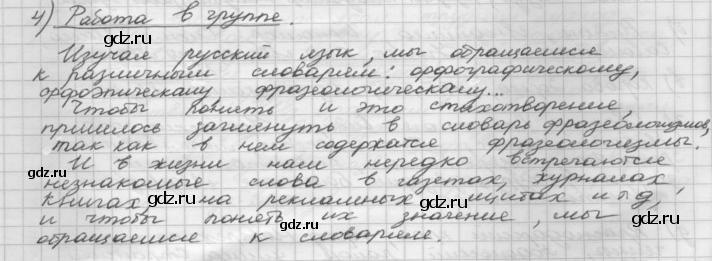 4) Работа в группе.
Изучая русский язык, мы обращаемся
к различным словарям: орфографическому,
орфоэпическому фразеологическому...
Чтобы понять и это стихотворение,
пришлось заглянуть в словарь фразеологизмов,
так как в нем содержатся фразеологизмы.
И в жизни нам нередко встречаются
незнакомые слова в газетах, журналах
книгах, на рекламных щитах и т.д,
и чтобы понять их значение, мы
обращаемся к словарям.
gdz.ru gdz.ru gdz.ru
gdz.ru gdz.ru gdz.ru
gdz.ru gdz.ru gdz.ru
gdz.ru gdz.ru gdz.ru